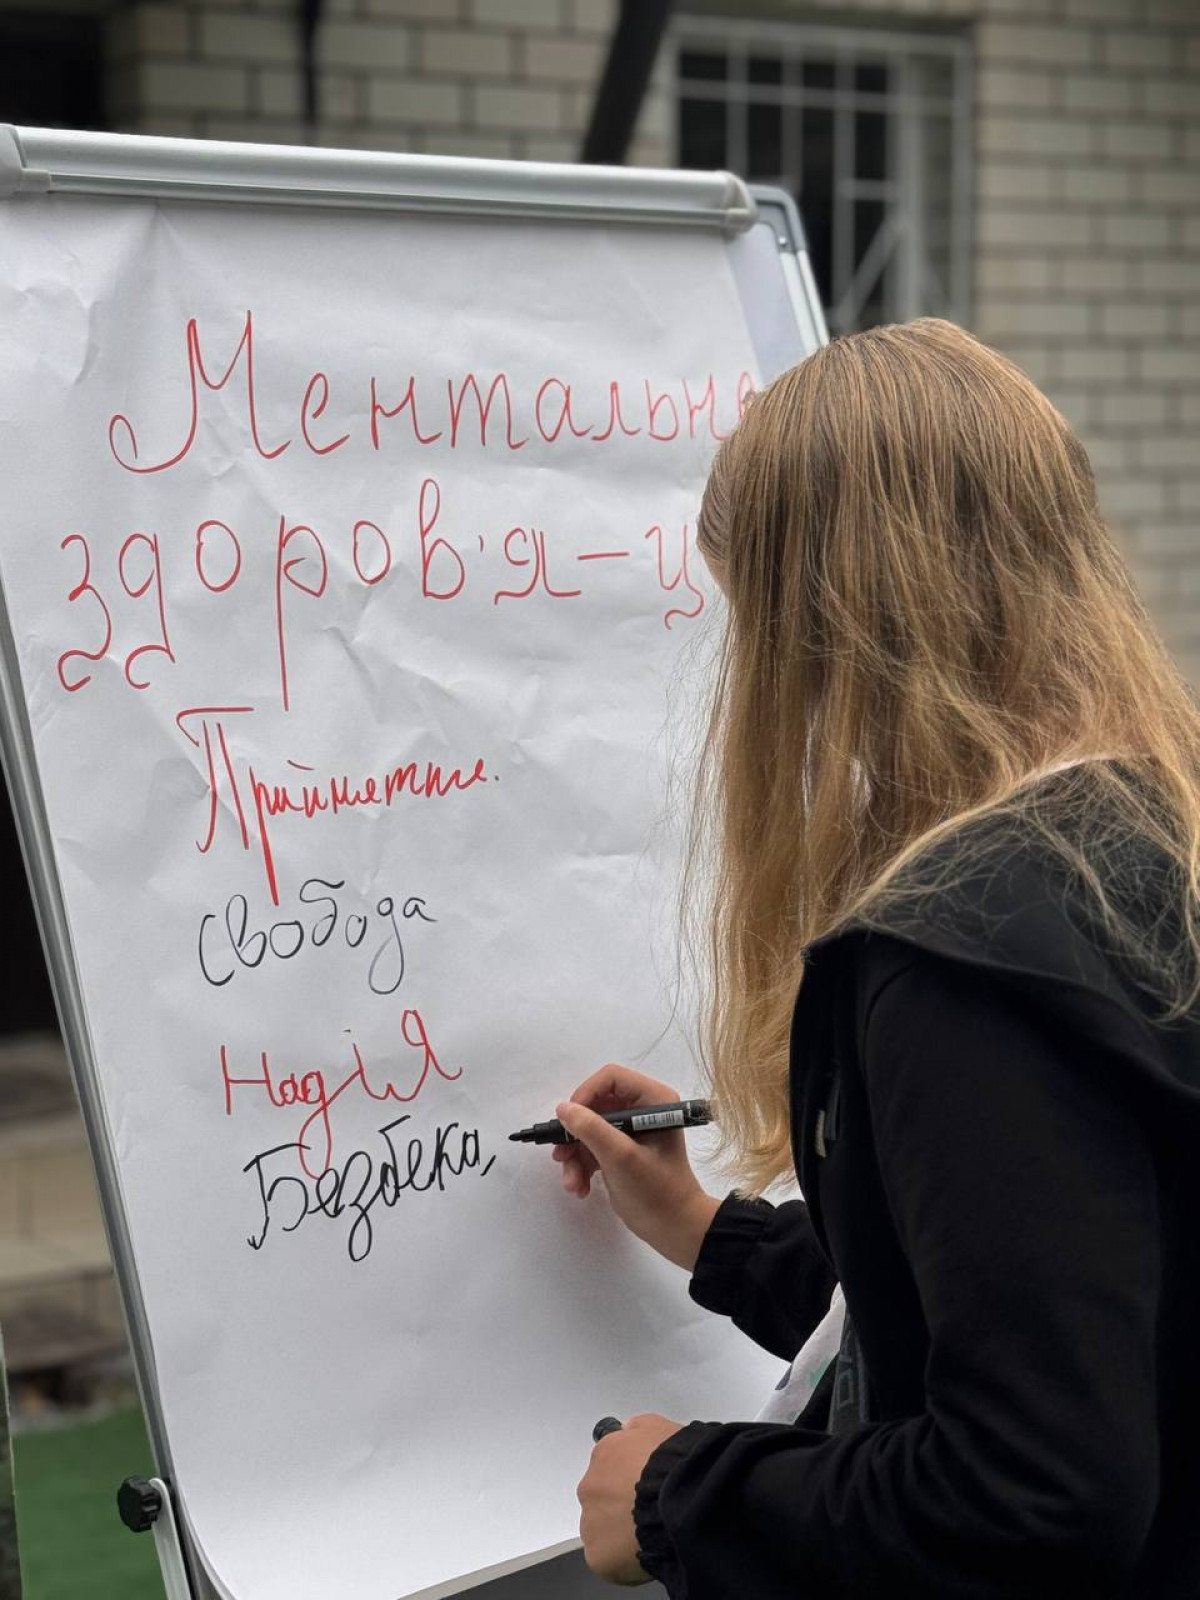 Ментальне
здоров'я – ц
Прийняття.
свобода
Надія
Безпека,